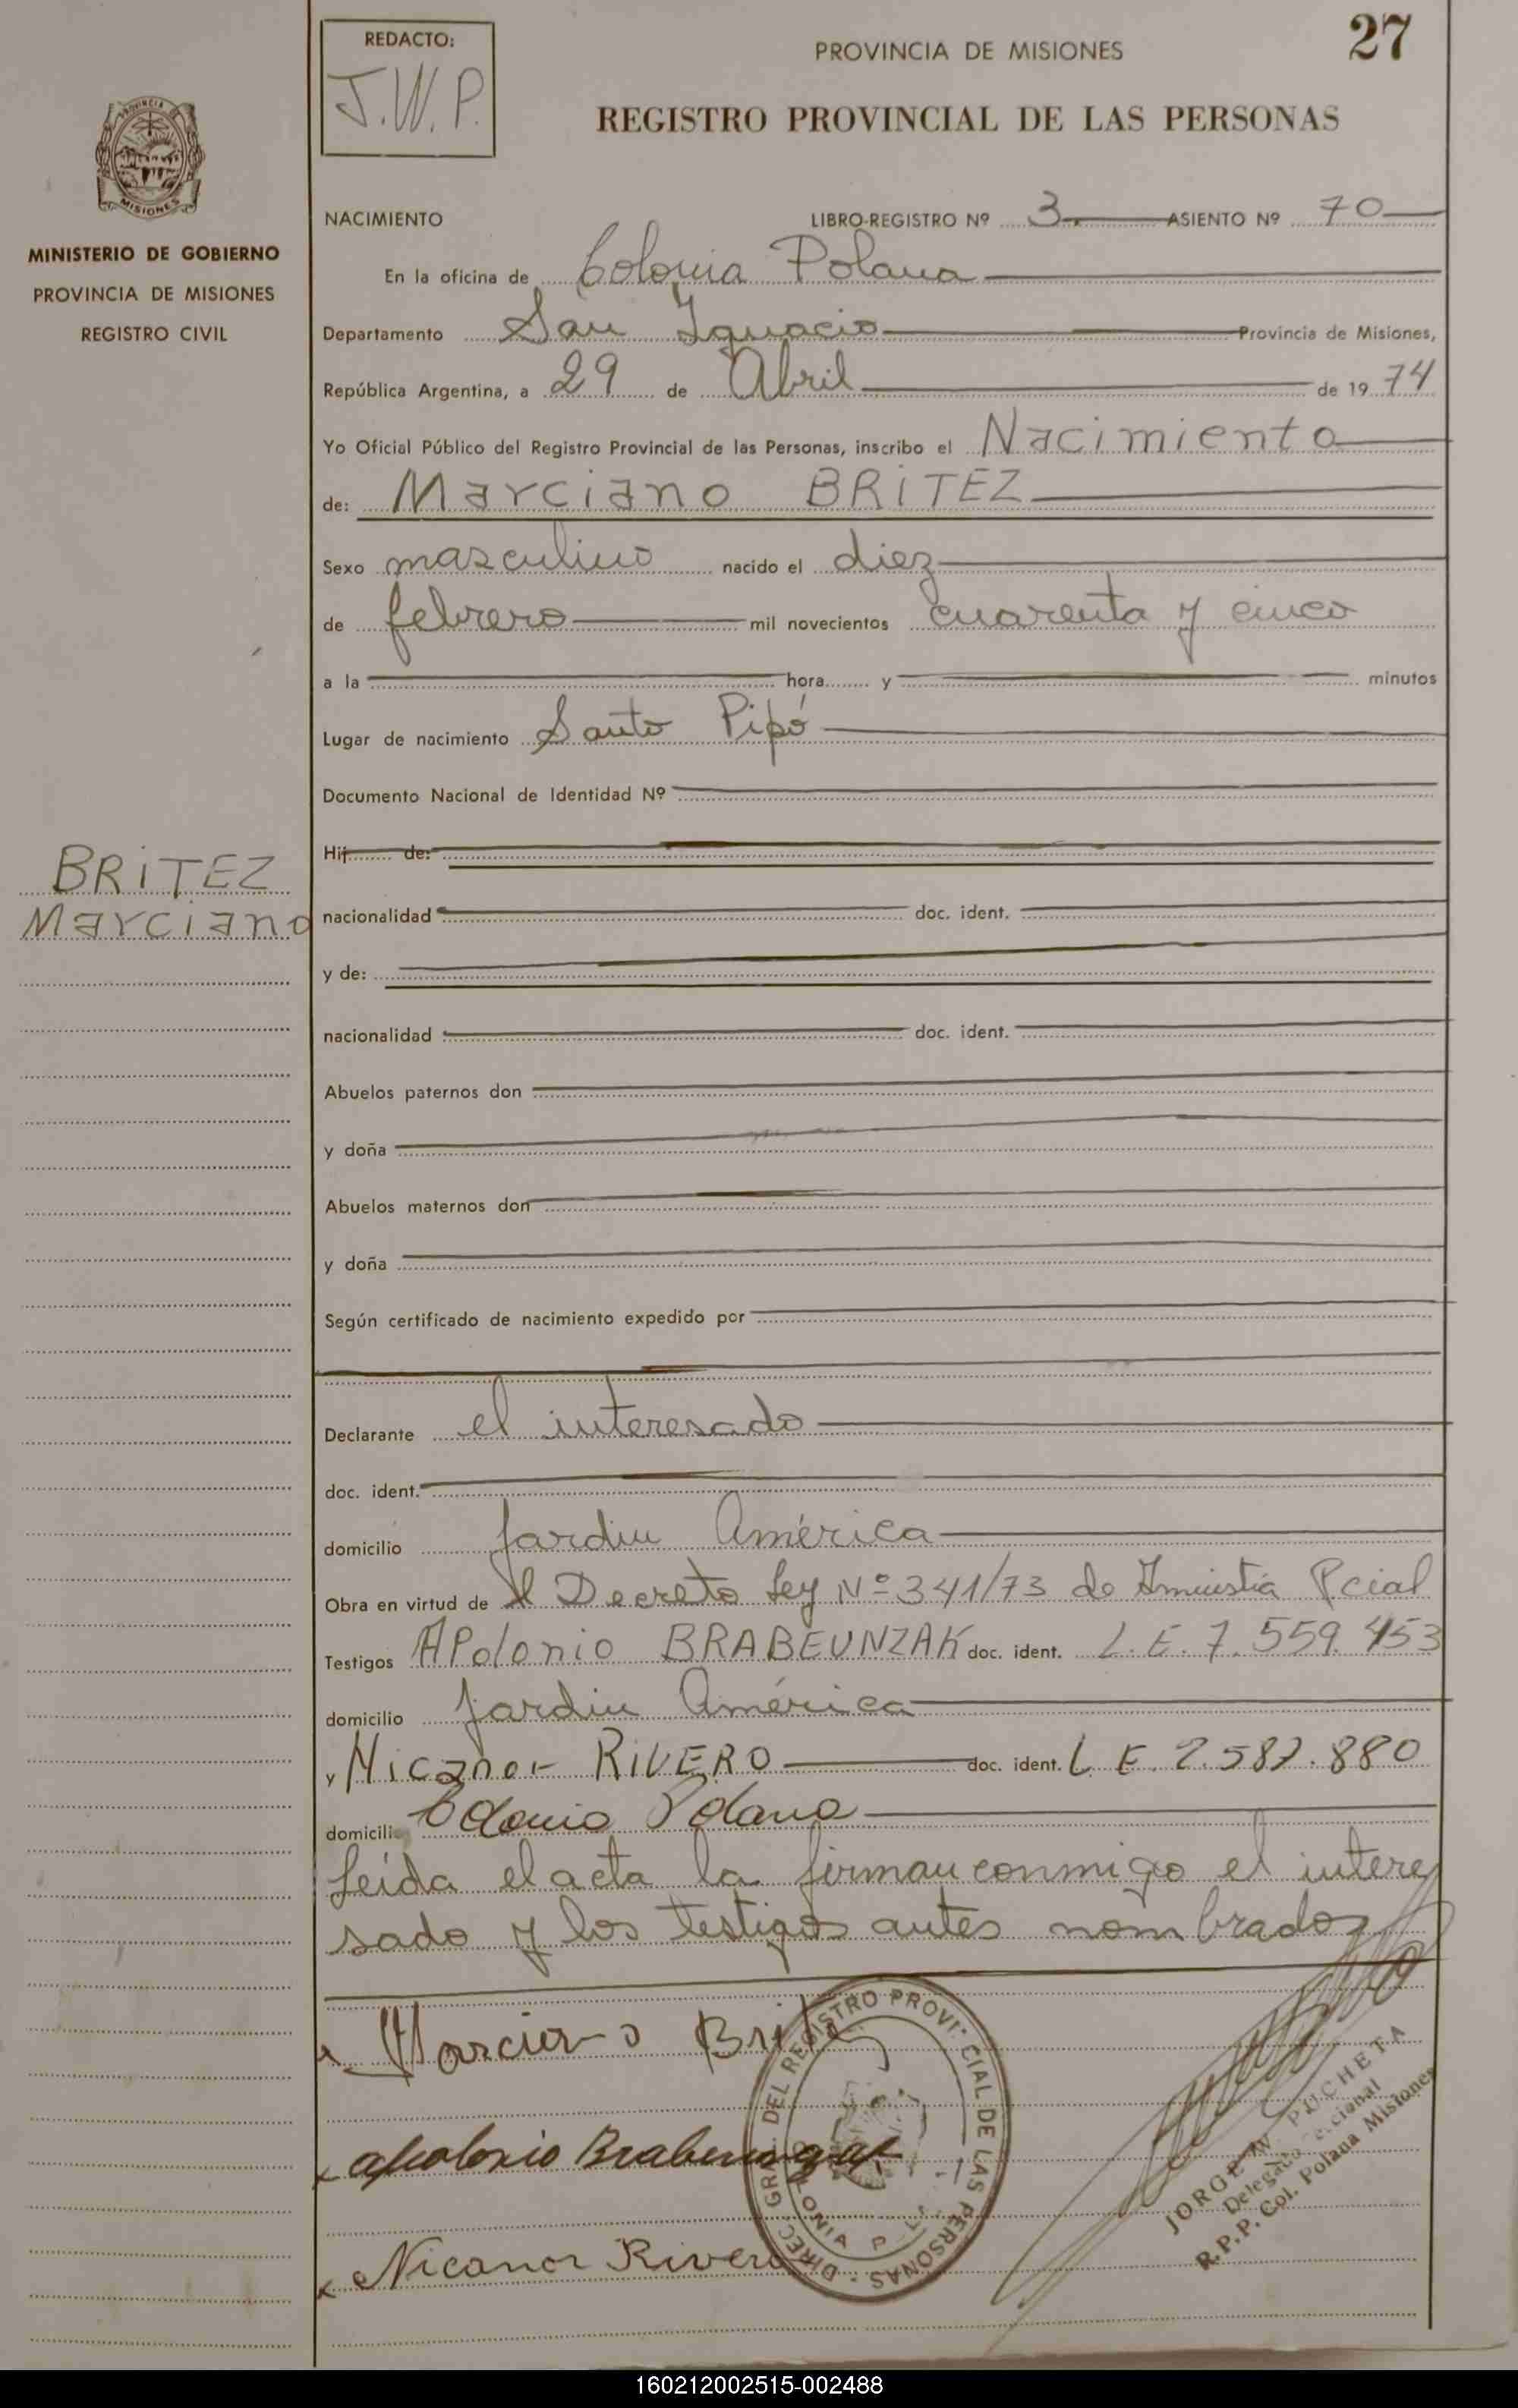 REDACTO:
J.W.P.
PROVINCIA DE MISIONES
27
REGISTRO PROVINCIAL DE LAS PERSONAS
PROVINCIA
MISIONES
MINISTERIO DE GOBIERNO
PROVINCIA DE MISIONES
REGISTRO CIVIL
NACIMIENTO LIBRO-REGISTRO Nº 3 ASIENTO Nº 70
En la oficina de Colonia Polana
Departamento San Ignacio Provincia de Misiones,
República Argentina, a 29 de Abril de 1974
Yo Oficial Público del Registro Provincial de las Personas, inscribo el Nacimiento
de: Marciano BRITEZ
Sexo masculino nacido el diez
de febrero mil novecientos cuarenta y cinco
a la hora y minutos
Lugar de nacimiento Santo Pipó
Documento Nacional de Identidad Nº
Hij de:
BRITEZ
Marciano
nacionalidad doc. ident.
y de:
nacionalidad doc. ident.
Abuelos paternos don
y doña
Abuelos maternos don
y doña
Según certificado de nacimiento expedido por
Declarante el interesado
doc. ident.
domicilio Jardin América
Obra en virtud de el Decreto Ley Nº 341/73 de Amnistia Pcial
Testigos APolonio BRABEUNZAK doc. ident. L.E. 7.559.453
domicilio Jardin América
y Nicanor RIVERO doc. ident. L E. 2.587.880
domicilio Colonia Polana
Leída el acta la firman conmigo el intere
sado y los testigos antes nombrados
Marciano Britez
apolonio
Nicanor Rivero
DIREC. GRAL. DEL REGISTRO PROVINCIAL DE LAS PERSONAS
COLONIA POLANA
JORGE W. PUCHETA
Delegado Seccional
R.P.P. Col. Polana Misiones
160212002515-002488